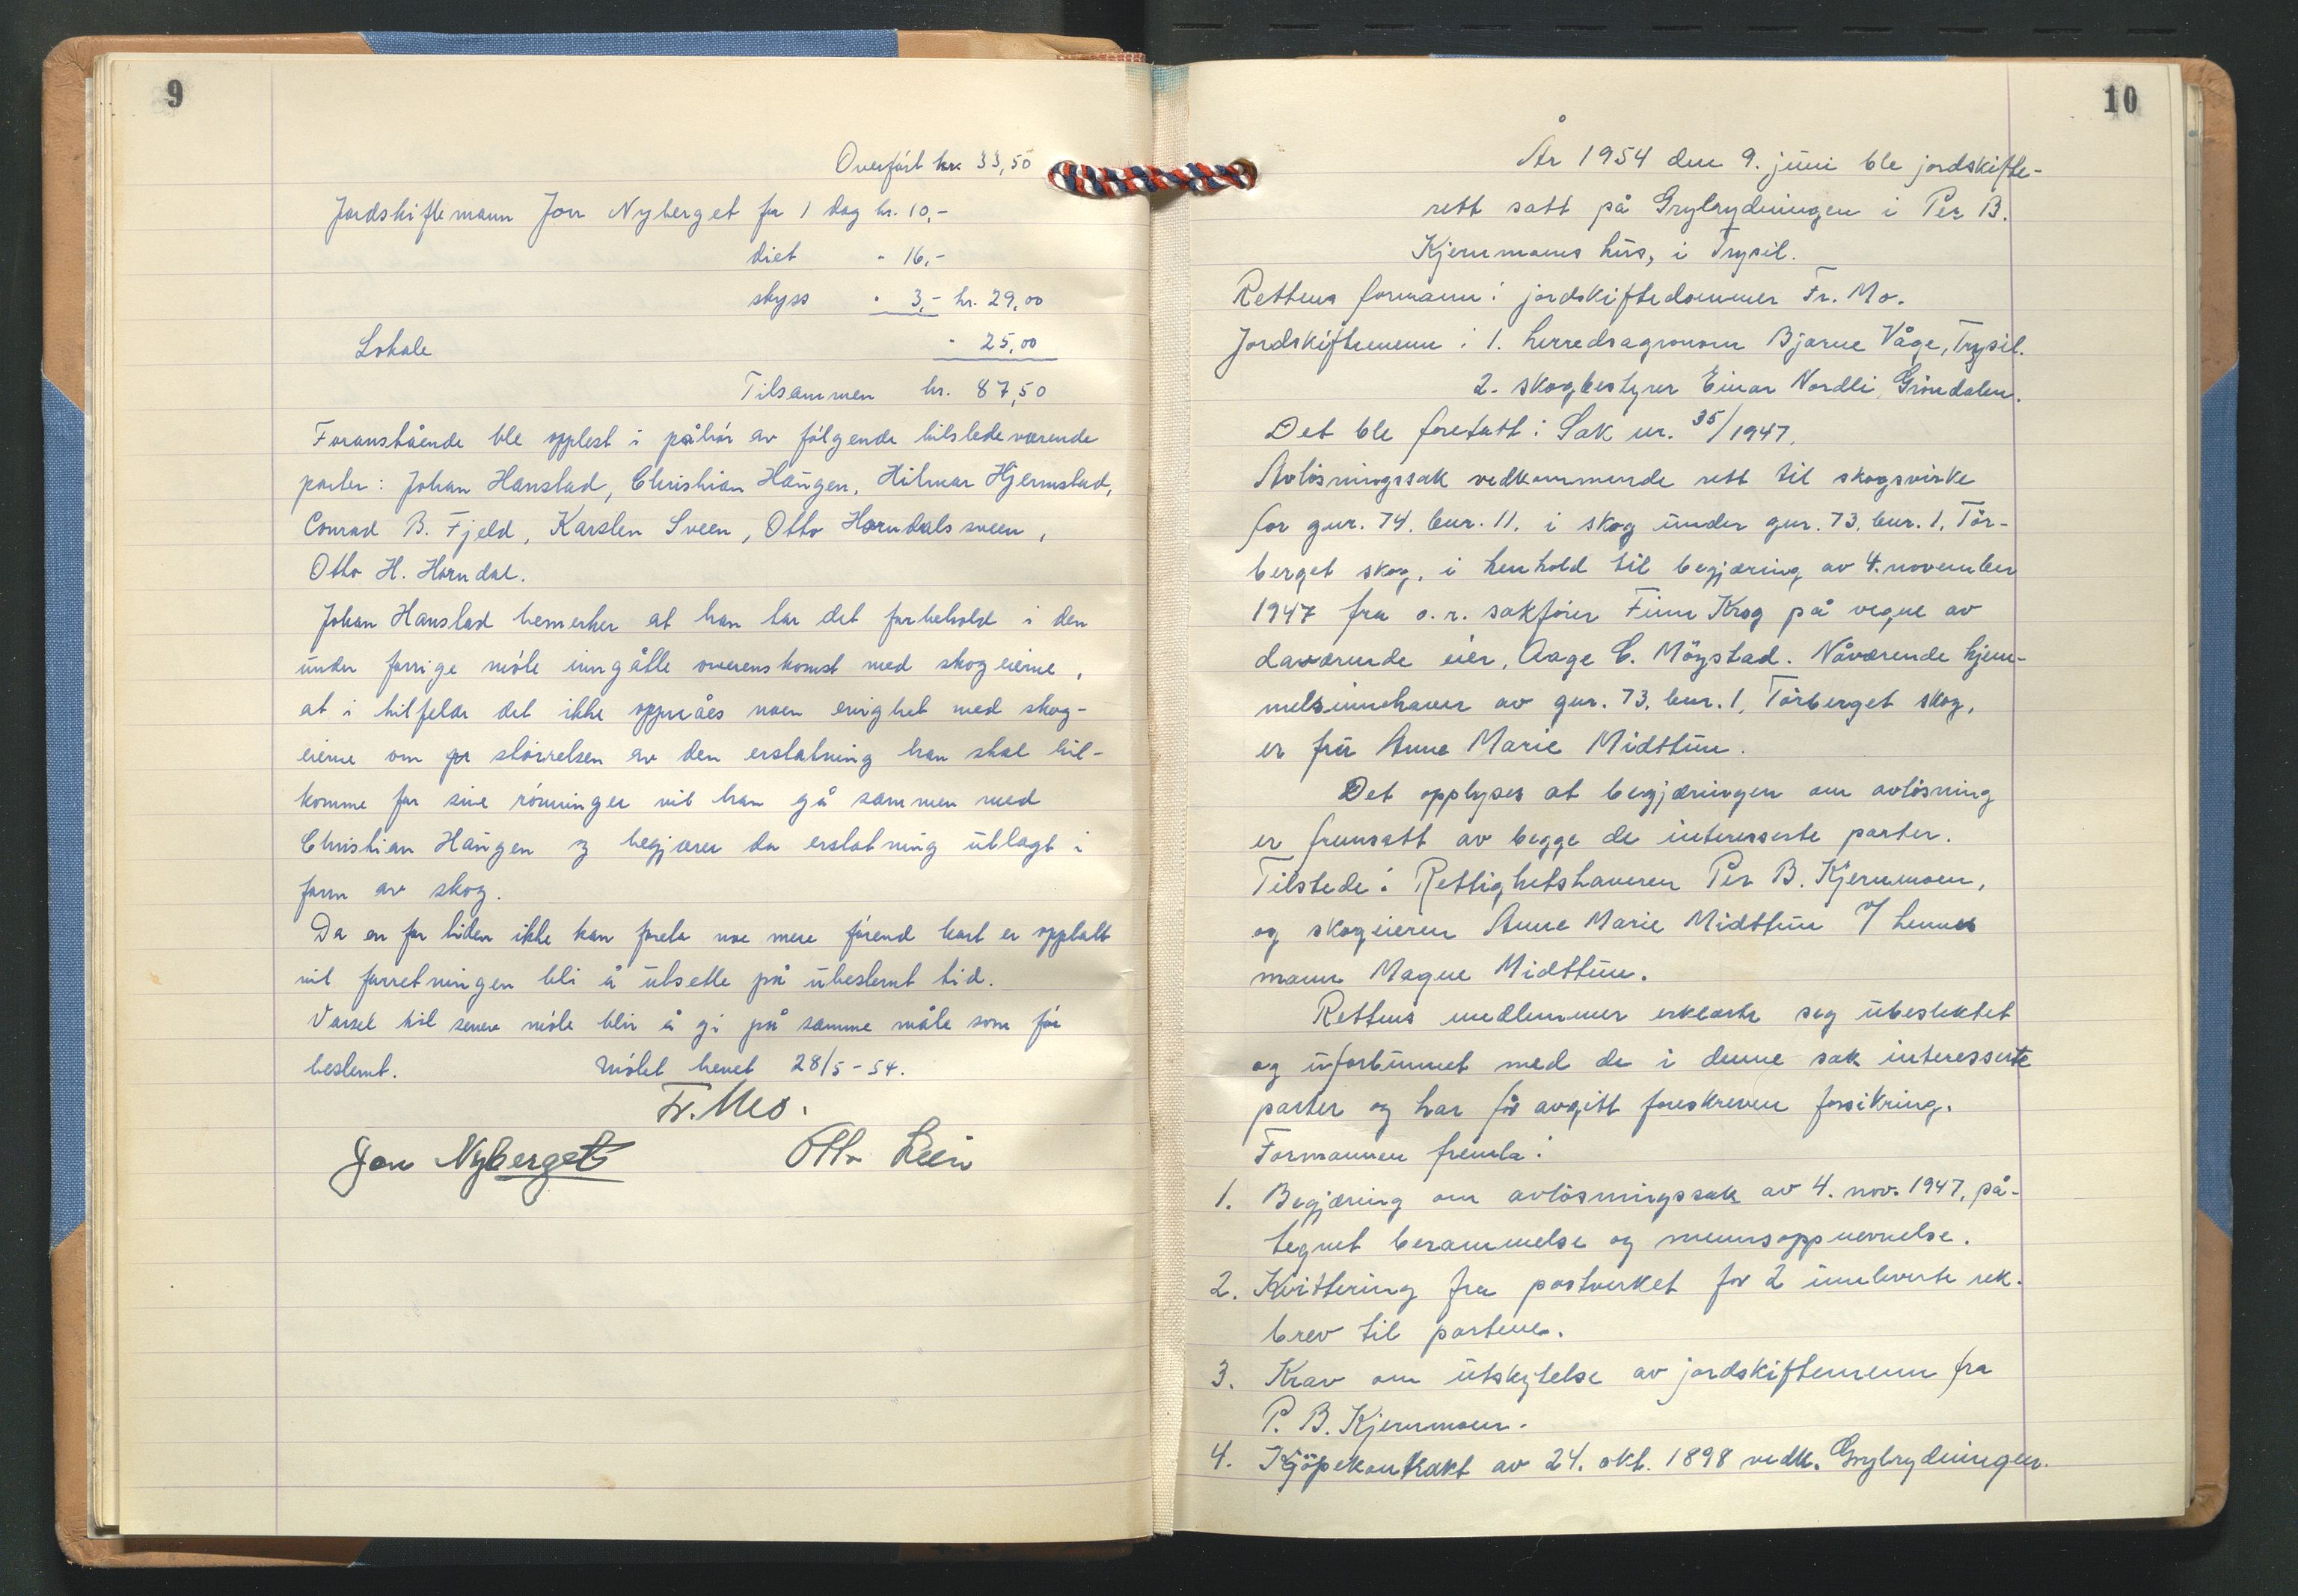 9
Overført kr. 33,50
Jordskiftemann Jon Nyberget for 1 dag kr. 10,-
diet " 16,-
skyss " 3,- kr. 29,00
Lokale " 25,00
Tilsammen kr. 87,50
Foranstående ble opplest i påhør av følgende tilstedeværende
parter: Johan Hanstad, Christian Haugen, Hilmar Hjermstad,
Conrad B. Fjeld, Karsten Sveen, Otto Horndalssveen,
Otto H. Horndal.
Johan Hanstad bemerker at han tar det forbehold i den
under forrige møte inngåtte overenskomst med skogeierne,
at i tilfelde det ikke oppnåes noen enighet med skog-
eierne om størrelsen av den erstatning han skal til-
komme for sine rømninger vil han gå sammen med
Christian Haugen og begjærer da erstatning utlagt i
form av skog.
Da en for tiden ikke kan foreta noe mere førend kart er opptatt
vil forretningen bli å utsette på ubestemt tid.
Varsel til senere møte blir å gi på samme måte som før
bestemt. Møtet hevet 28/5-54.
Fr. Mo.
Jon Nyberget Otto Lein
10
År 1954 den 9. juni ble jordskifte-
rett satt på Grybrydningen i Per B.
Kjernmoens hus, i Trysil.
Rettens formann: jordskiftedommer Fr. Mo.
Jordskiftemenn: 1. herredsagronom Bjarne Våge, Trysil.
2. skogbestyrer Einar Nordli, Gröndalen.
Det ble foretatt: Sak nr. 35/1947.
Avlösningssak vedkommende rett til skogsvirke
for gnr. 74, bnr. 11. i skog under gnr. 73, bnr. 1, Tör-
berget skog, i henhold til begjæring av 4. november
1947 fra o.r. sakförer Finn Krog på vegne av
daværende eier, Aage C. Möystad. Nåværende hjem-
melsinnehaver av gnr. 73, bnr. 1, Törberget skog,
er fru Anne Marie Midttun.
Det opplyses at begjæringen om avlösning
er fremsatt av begge de interesserte parter.
Tilstede: Rettighetshaveren Per B. Kjernmoen,
og skogeieren Anne Marie Midttun v/ hennes
mann Magne Midttun.
Rettens medlemmer erklærte seg ubeslektet
og uforbunnet med de i denne sak interesserte
parter og har för avgitt foreskreven forsikring.
Formannen fremla:
1. Begjæring om avlösningssak av 4. nov. 1947, på-
tegnet berammelse og mennsoppnevnelse.
2. Kvittering fra postverket for 2 innleverte rek.
brev til partene.
3. Krav om utskytelse av jordskiftemenn fra
P. B. Kjernmoen.
4. Kjöpekontrakt av 24. okt. 1898 vedk. Grybrydningen.